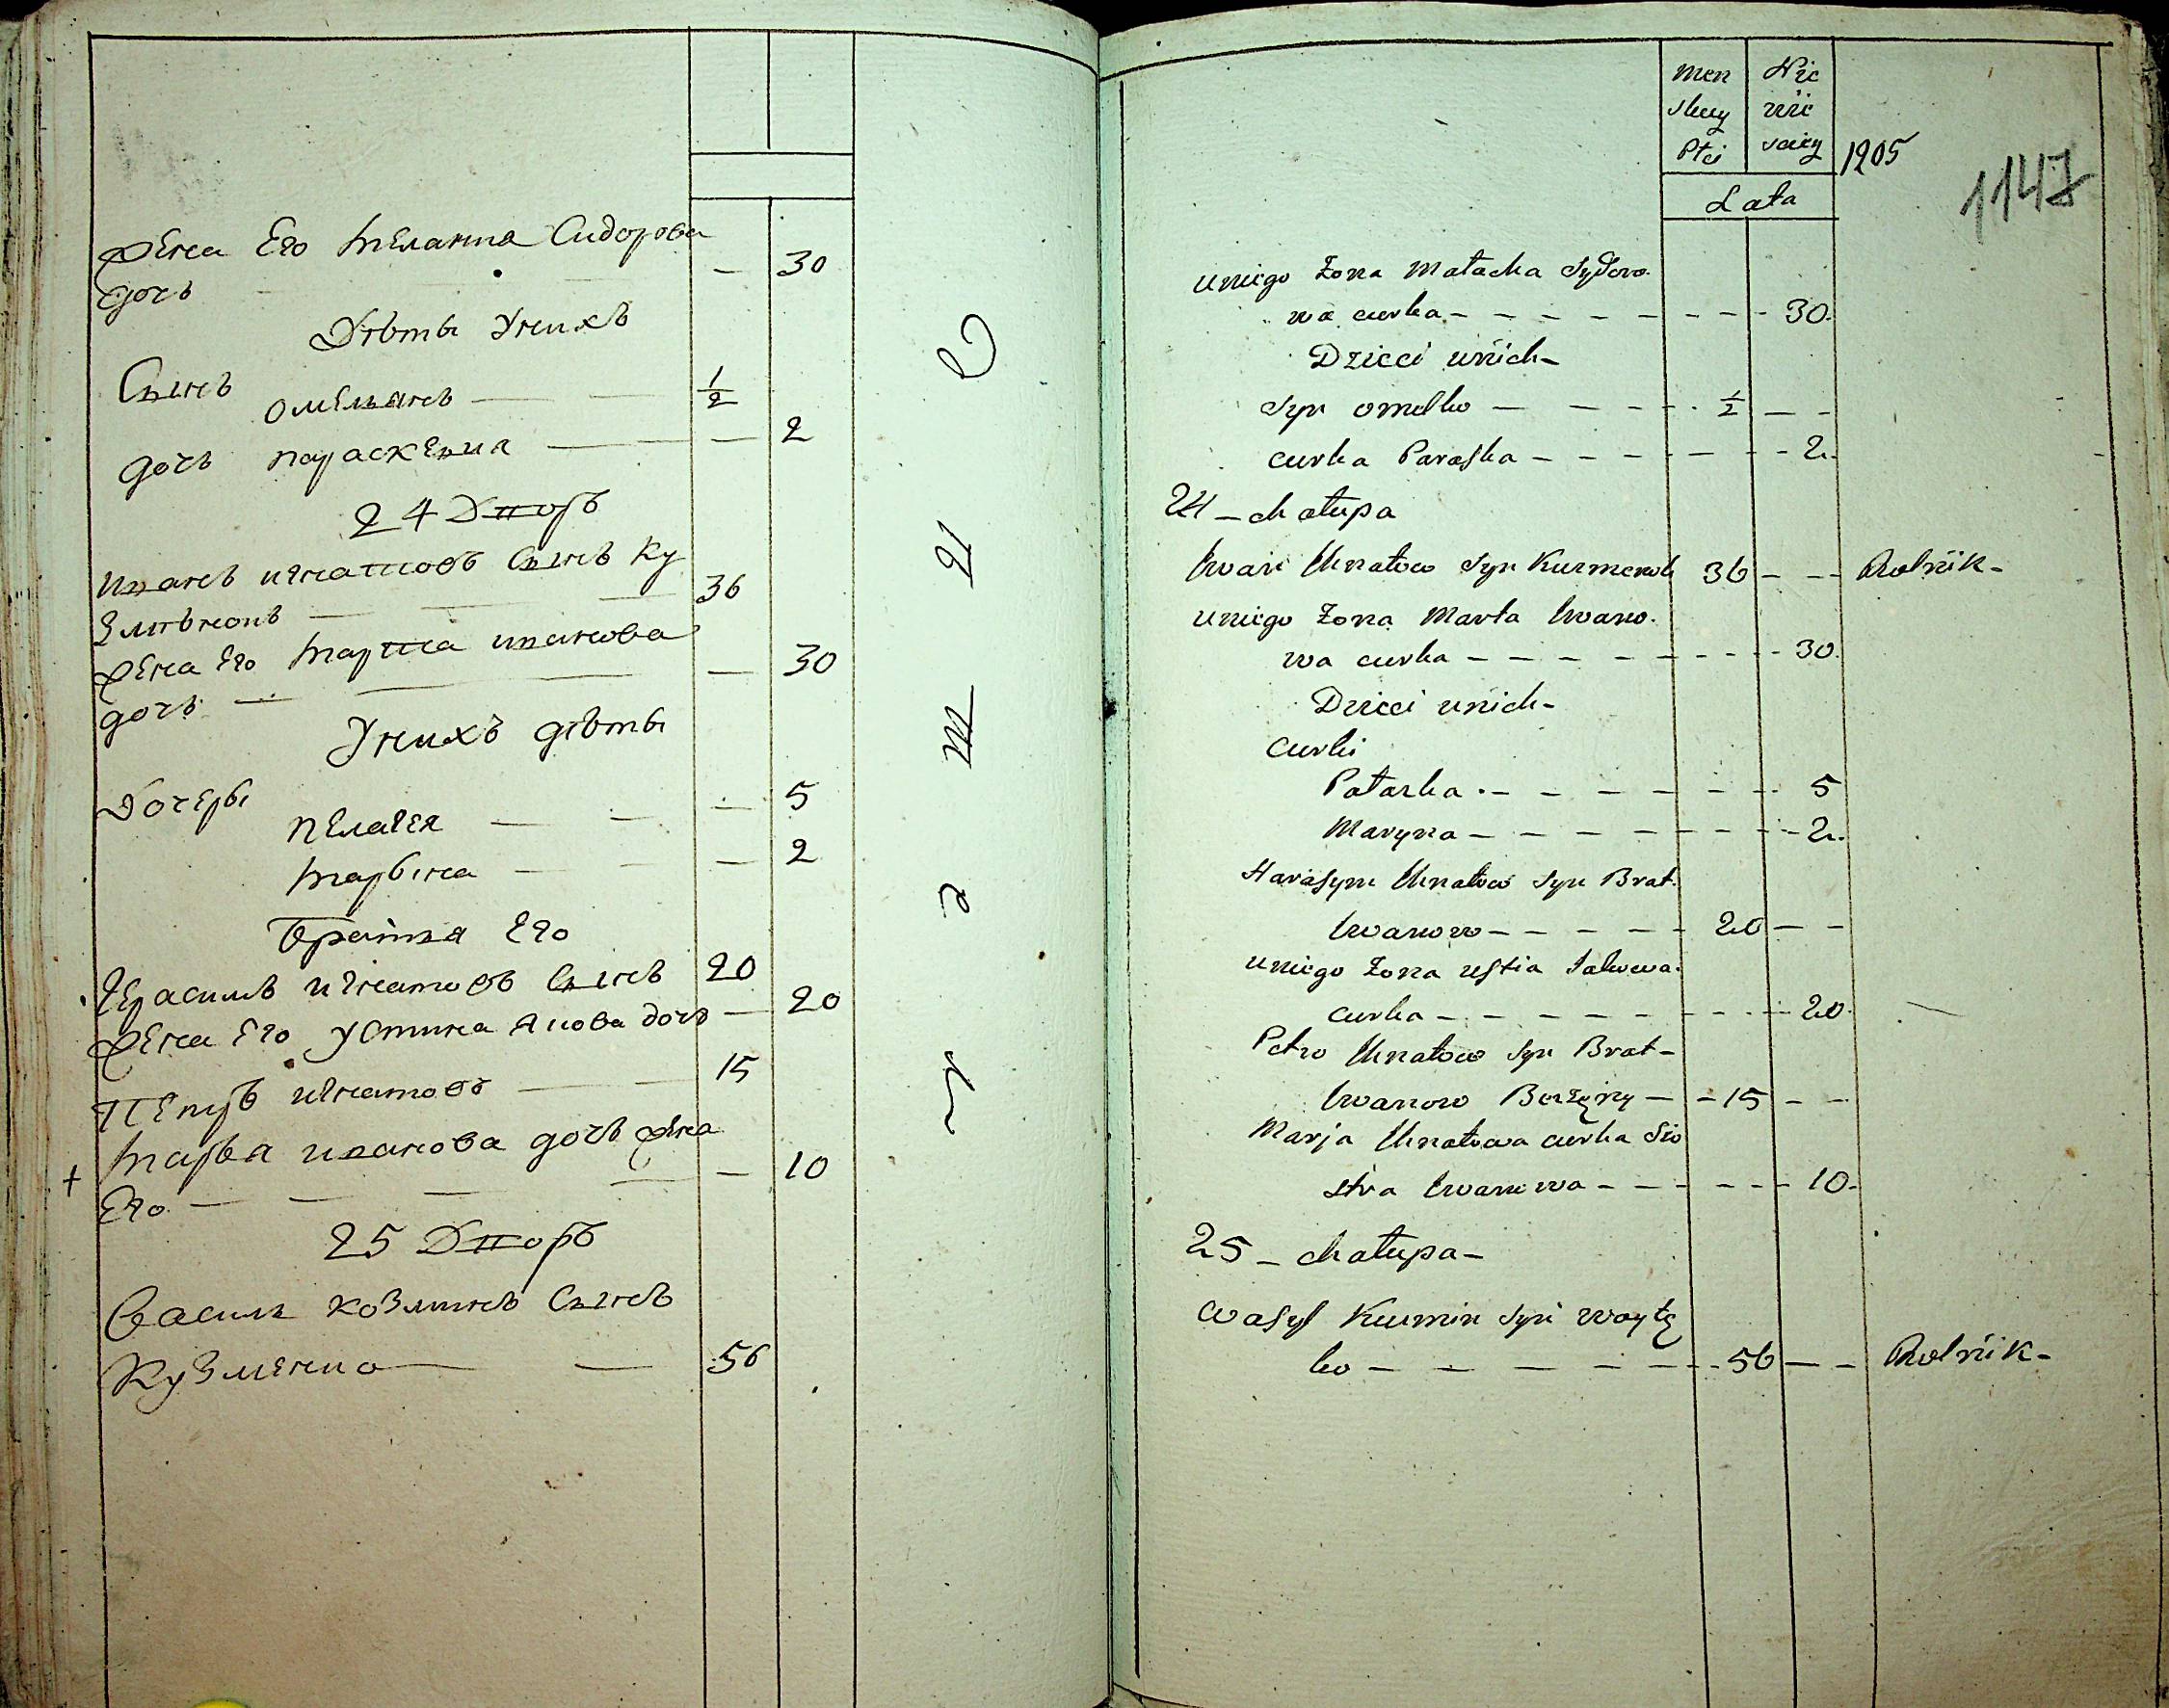 Жена Его Меланиа Сидорова
дочь — 30
Дѣти Унихъ
Сынъ Омельянъ — 1/2
дочь параскевиа — — 2
24 Дворъ
иванъ игнатовъ Сынъ Ку
змѣнонъ — 36
Жена Его марта иванова
дочь — — 30
Унихъ дѣти
Дочеры
пелагея — — 5
марына — — 2
братья Его
Герасимъ игнатовъ Сынъ 20
Жена Его Устина Якова дочь — 20
Петръ игнатовъ — 15
марья иванова дочь жена
+ Его — — 10
25 Дворъ
Василь козминъ Сынъ
Кузменко — 56
men Nie
skuy wie
Ptci sciey 1205
Lata
1147
uniego Zona Matacha Sydoro-
wa curka - - - 30.
Dzieci unich-
Syn omelko - - - 1/2 - -
curka Paraska - - - 2.
24 - chatupa
Iwan Uhnatow Syn Kuzmenok 36 - - Rolnik-
uniego Zona Marta Iwano-
wa curka - - - 30.
Dzieci unich-
curki
Patazka - - - 5
Maryna - - - 2.
Harasym Uhnatow Syn Brat.
Iwanow - - - 20 - -
uniego Zona ustia Jakowa.
curka - - - 20.
Petro Uhnatow Syn Brat-
Iwanow - -15 - -
Marja Uhnatowa curka Sio
stra Iwanowa - - - 10-
25 - chatupa-
Wasyl Kuzmin Syn
ko - - - 56 - - Rolnik-